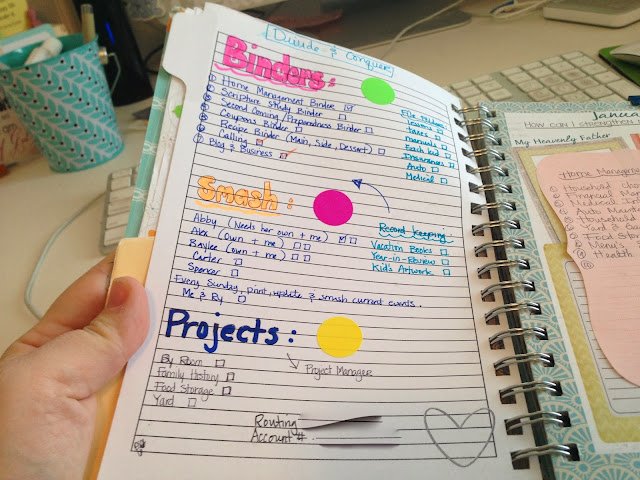 Divide & Conquer
Binders:
① Home Management Binder
② Scripture Study Binder
③ Second Coming/Preparedness Binder
④ Coupons Binder
⑤ Recipe Binder (Main, Side, Dessert)
⑥ Calling
⑦ Blog & Business
File Folders
taxes
manuals
Each kid
Auto
Medical
Smash:
Abby (Needs her own + me)
Alex (own + me)
Baylee (own + me)
Carter
Spencer
Every Sunday, print, update & smash current events.
Me & Ry
Record Keeping
Vacation Books
Year-in-Review
Kid's Artwork
Projects:
By Room
Family History
Food Storage
Yard
Project Manager
Routing
Account #
Janua
How can I strengthen
My Heavenly Father
Home Managem
Household
Financial
Auto
Household
Yard &
Food Stora
Menu's
Health